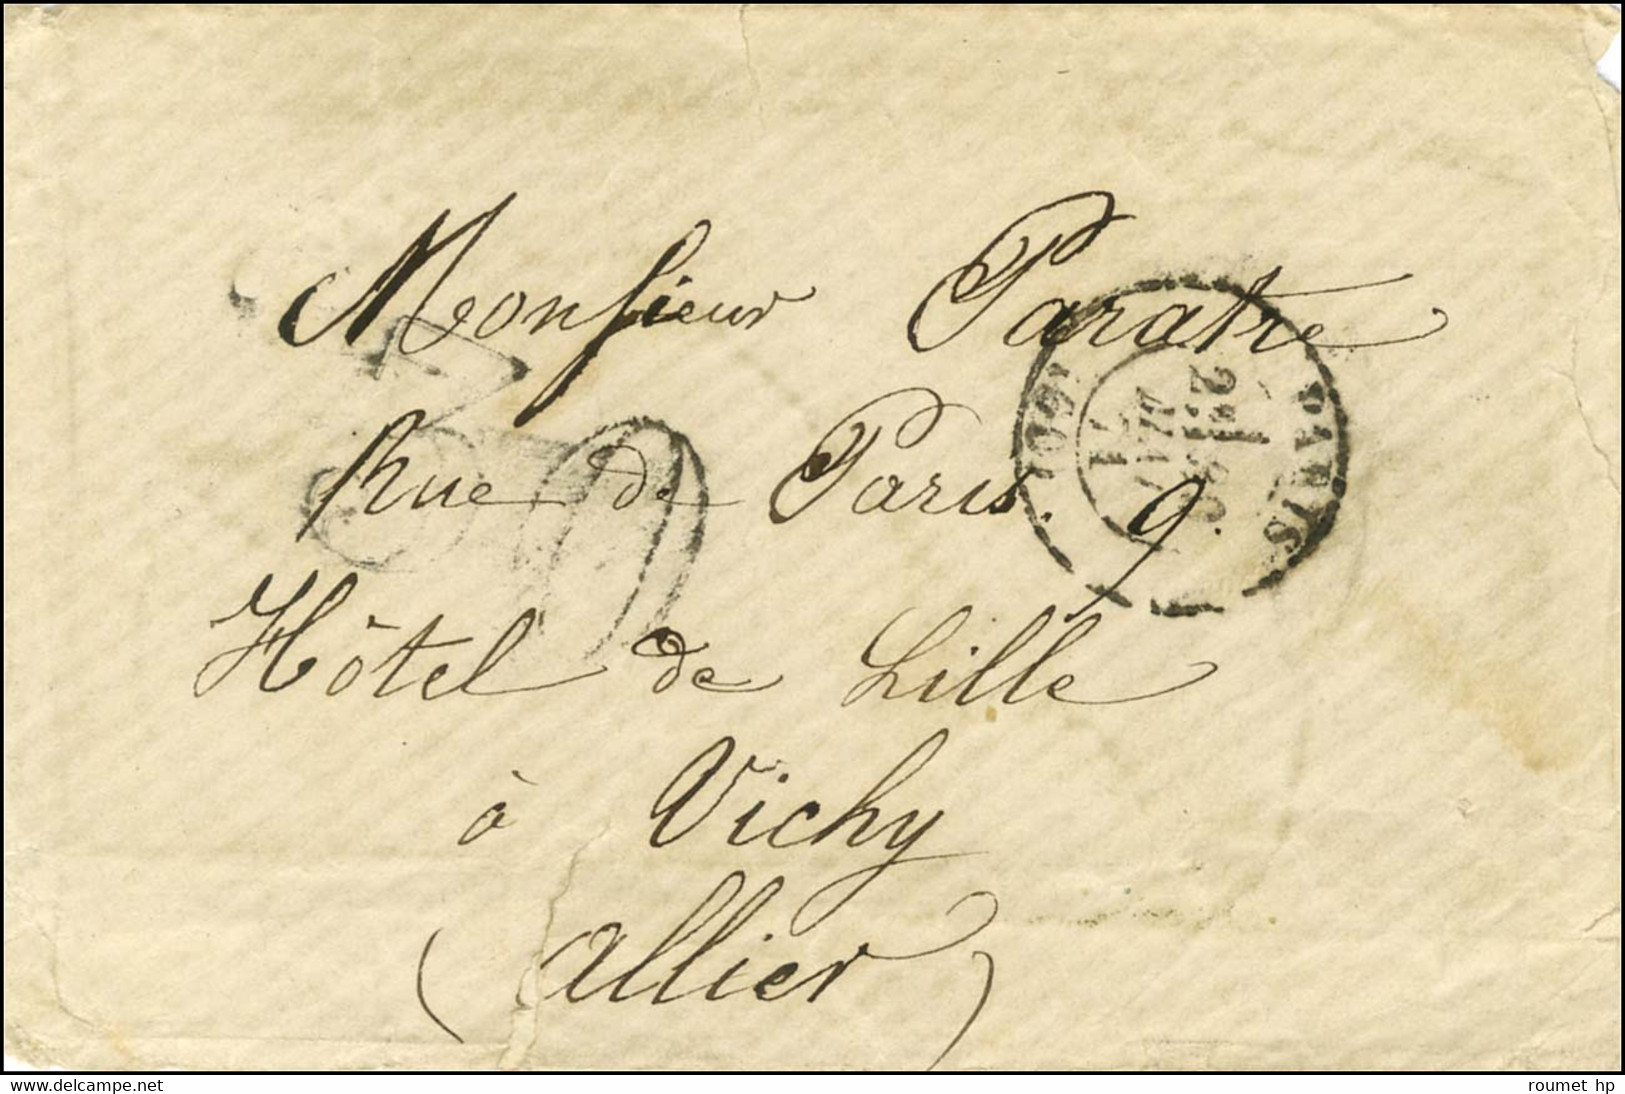 Monsieur Paratre
Rue de Paris. 9.
Hôtel de Lille
à Vichy
(Allier)
PARIS
(60)
www.delcampe.net
roumet hp